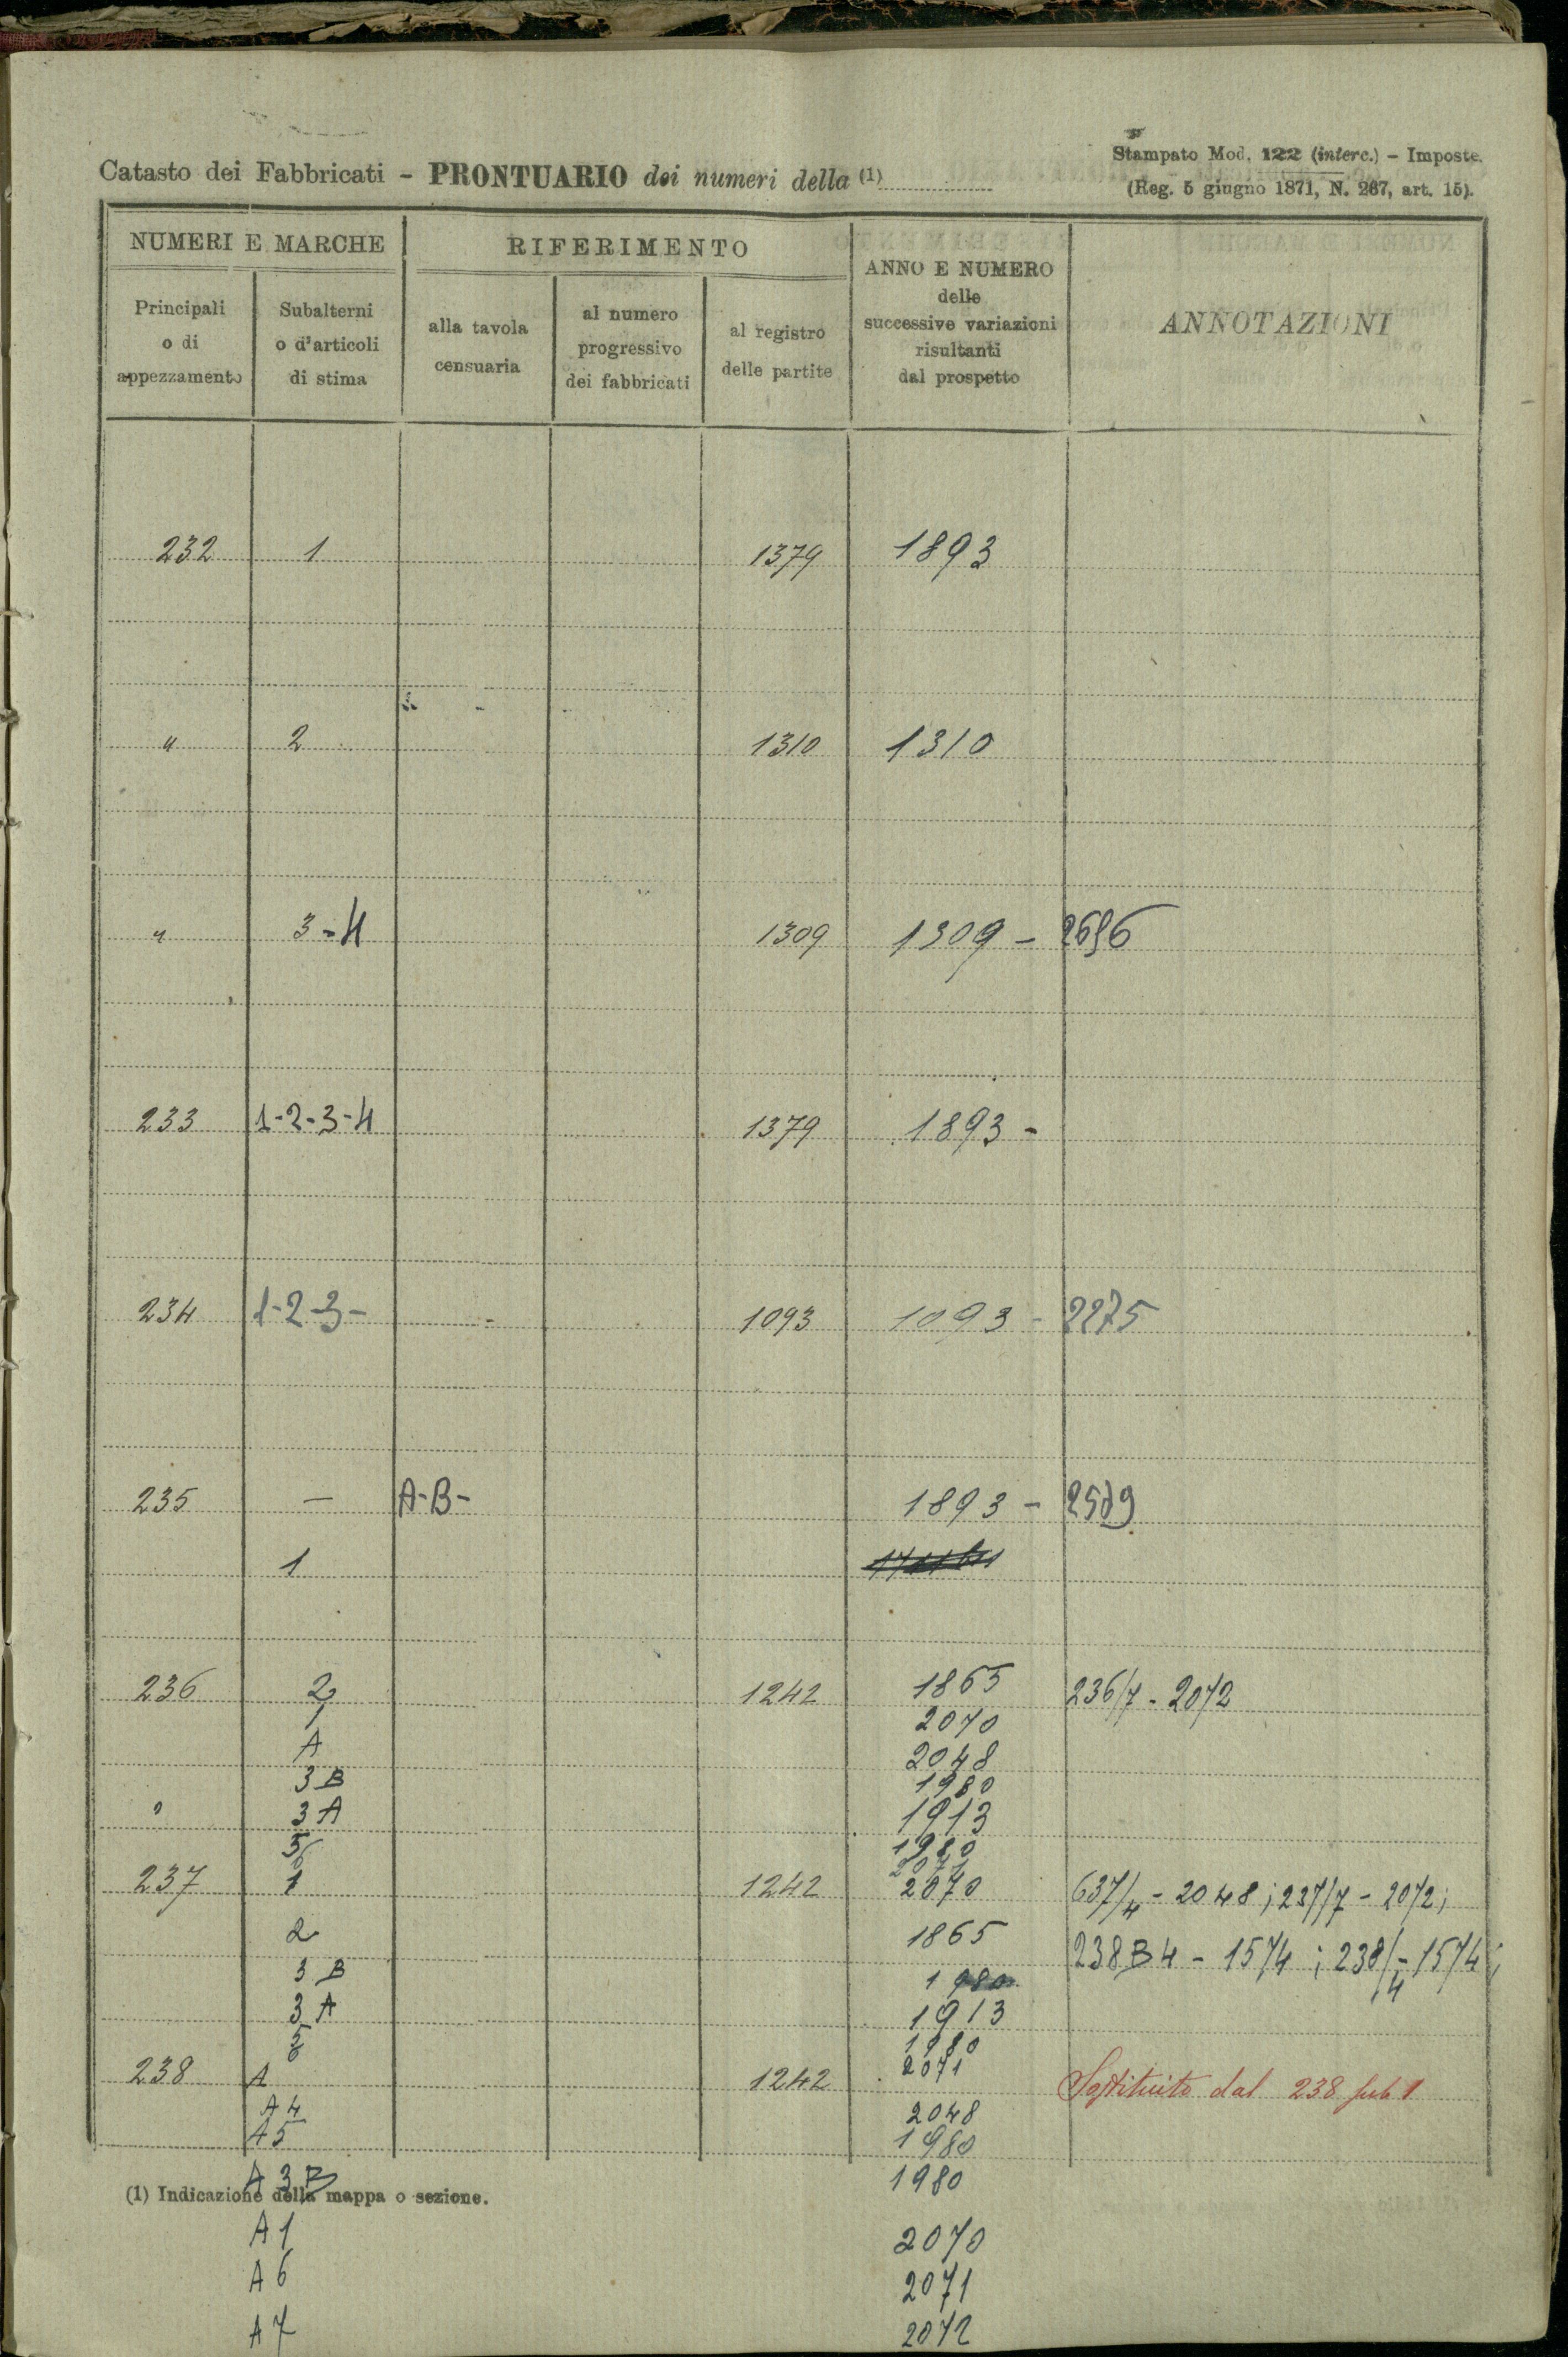 Stampato Mod. 122 (interc.) - Imposte.
Catasto dei Fabbricati - PRONTUARIO dei numeri della (1)
(Reg. 5 giugno 1871, N. 267, art. 15).
NUMERI E MARCHE
RIFERIMENTO
ANNO E NUMERO
delle
successive variazioni
risultanti
dal prospetto
ANNOTAZIONI
Principali
o di
appezzamento
Subalterni
o d'articoli
di stima
alla tavola
censuaria
al numero
progressivo
dei fabbricati
al registro
delle partite
232 1 1379 1893
" 2 1310 1310
" 3-4 1309 1309 - 2696
233 1-2-3-4 1379 1893 -
234 1-2-3- 1093 1093 - 2275
235 — A-B- 1893 -
1
236 2 1242 1865 236/7 - 2072
1 2070
A 2048
3 B 1980
" 3 A 1913
5 1980
6 2071
237 1 1242 2070 637/4 - 2048; 237/7 - 2072;
2 1865 238 B 4 - 1574; 238/4 - 1574;
3 B 1980
3 A 1913
5 1980
6 2071
238 A 1242 Sostituito dal 238 sub 1
A 4 2048
A 5 1980
A 3 B 1980
(1) Indicazione della mappa o sezione.
A 1 2070
A 6 2071
A 7 2072